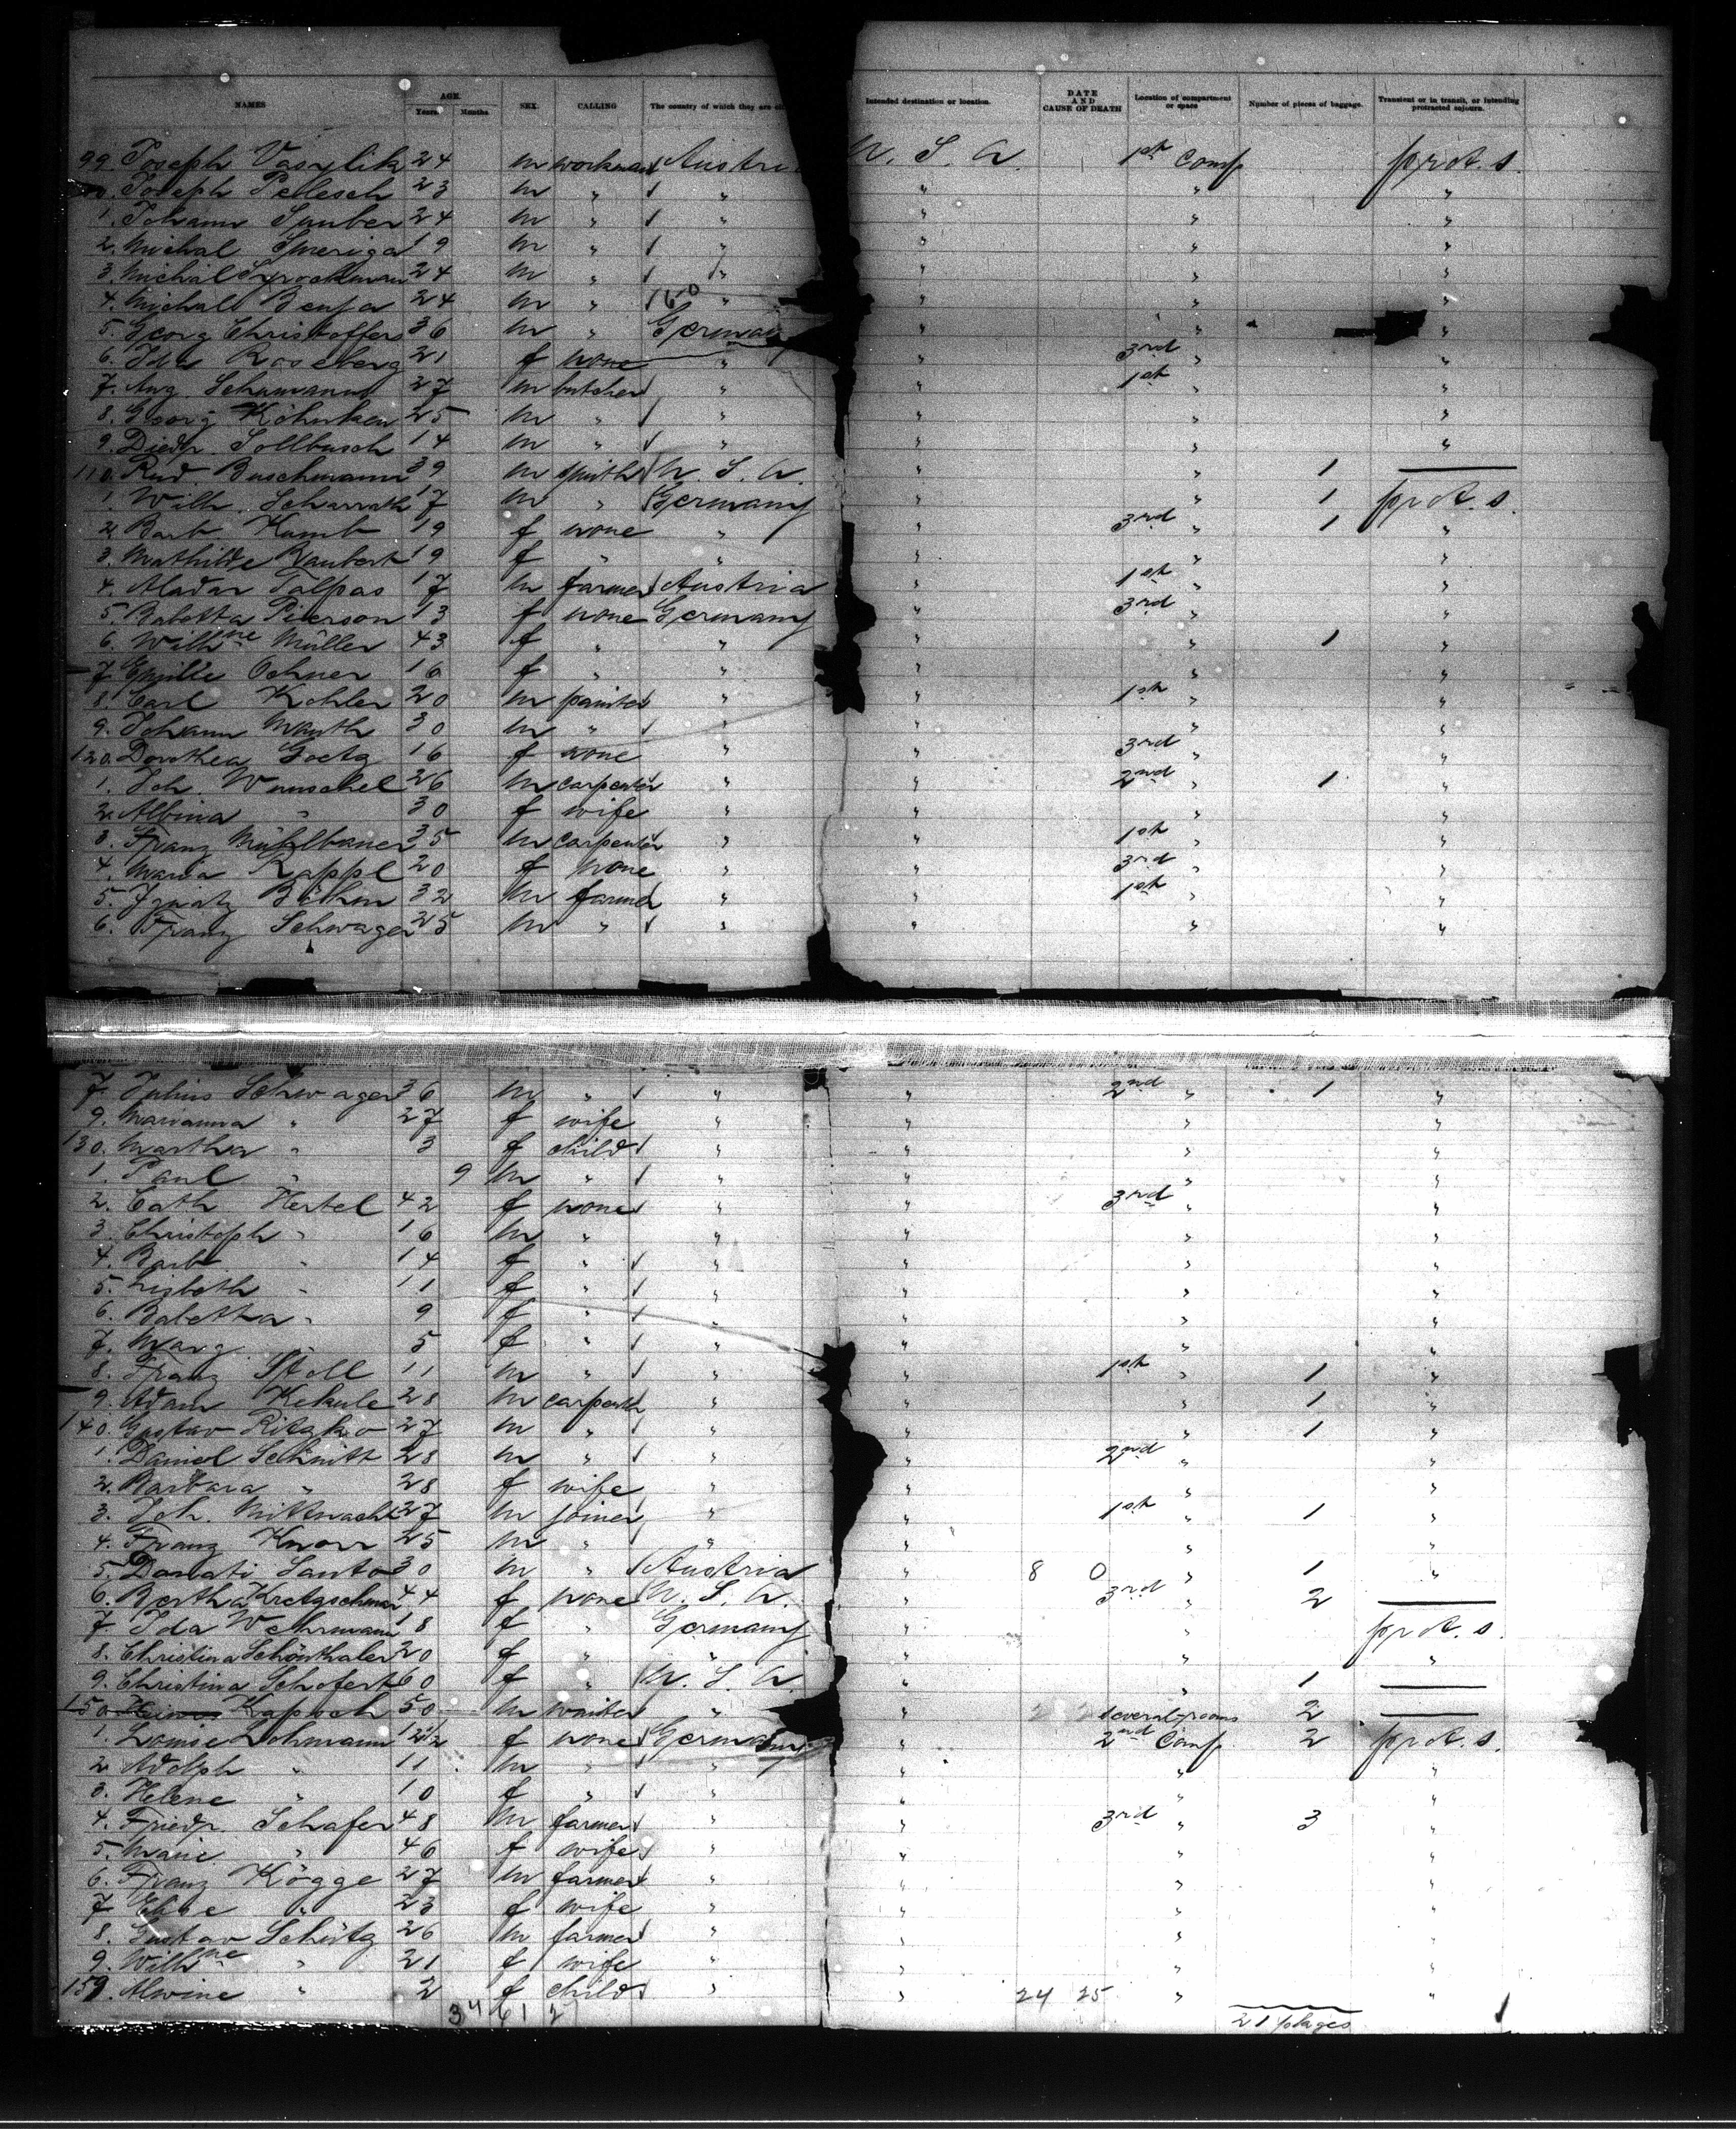 NAMES AGE. Years. Months. SEX. CALLING The country of which they are Intended destination or location. DATE AND CAUSE OF DEATH Location of compartment or space Number of pieces of baggage. Transient or in transit, or intending protracted sojourn.
99. Joseph Vasylik 24 m workman Austri U. S. A. 1st Comp prot. s.
Joseph Pelesch 23 m " " " " "
1. Johann 24 m " " " " "
2. Michal 19 m " " " " "
3. Michal 24 m " " " " "
4. Michal 24 m " 60 " " " "
5. Georg Christoffers 36 m " Germany " " "
6. Ida Roseberg 21 f none " " 3rd " "
7. Aug. Schumann 27 m butcher " " 1st " "
8. Georg Köhnken 25 m " " " " "
9. Diedr. Sollbusch 14 m " " " " "
110. Rud. Buschmann 39 m smith U. S. A. " " 1
1. Wilh. Scharrath 17 m " Germany " " 1 prot. s.
2. Barb Kamb 19 f none " " 3rd " 1 "
3. Mathilde Raubert 19 f " " " " "
4. Aladar Talpas 17 m farmer Austria " 1st " "
5. Babetta Pierson 13 f none Germany " 3rd " "
6. Wilhne Müller 43 f " " " " 1 "
7. Emilie Ochner 16 f " " " " "
8. Carl Kohler 20 m painter " " 1st " "
9. Johann Wauth 30 m " " " " "
120. Dorothea Goetz 16 f none " " 3rd " "
1. Joh. Wunschel 26 m carpenter " " 2nd " 1 "
2. Albina " 30 f wife " " " "
3. Franz Mühlbauer 35 m carpenter " " 1st " "
4. Maria Rappl 20 f none " " 3rd " "
5. Ignatz Böhm 32 m farmer " " 1st " "
6. Franz Schwager 25 m " " " " "
7. Julius Schwager 36 m " " " 2nd " 1 "
9. Marianna " 27 f wife " " " "
130. Martha " 3 f child " " " "
1. Paul " 9 m " " " " "
2. Cath Hertel 42 f none " " 3rd " "
3. Christoph " 16 m " " " " "
4. Barb. " 14 f " " " " "
5. Lisbeth " 11 f " " " " "
6. Babetta " 9 f " " " " "
7. Marg. " 5 f " " " " "
8. Franz Stoll 11 m " " " 1st " 1 "
9. Adam Kekule 28 m carpenter " " " 1 "
140. Gustav Ritzko 27 m " " " " 1 "
1. Daniel Schmitt 28 m " " " 2nd " "
2. Barbara " 28 f wife " " " "
3. Joh. Mittnacht 27 m joiner " " 1st " 1 "
4. Franz Knorr 25 m " " " " "
5. Donati Santo 30 m " Austria " 8 0 " 1 "
6. Bertha Kretzschmar 44 f none U. S. A. " 3rd " 2
7. Ida Wehrmann 18 f " Germany " " prot. s.
8. Christina Schönthaler 20 f " " " " "
9. Christina Schofert 60 f " U. S. A. " " 1
150. Kapsch 50 m waiter " " several rooms 2
1. Louise Lohmann 12 1/2 f none Germany " 2nd Comp 2 prot. s.
2. Adolph " 11 m " " " " "
3. Helene " 10 f " " " " "
4. Friedr. Schafer 48 m farmer " " 3rd " 3 "
5. Marie " 46 f wife " " " "
6. Franz Kögge 27 m farmer " " " "
7. Elise " 23 f wife " " " "
8. Gustav Schütz 26 m farmer " " " "
9. Wilhne " 21 f wife " " " "
159. Alwine " 2 f child " " 24 25 " "
34 61 2 21